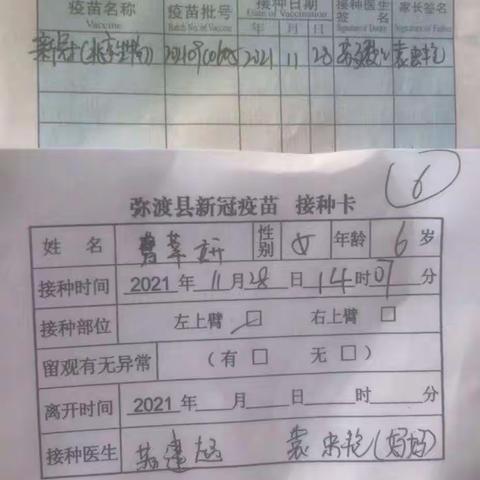 疫苗名称 疫苗批号 接种日期 接种医生签名 家长签名
Vaccine Batch No. of Vaccine Date of Vaccination Signature of Doctor Signature of Father
年 月 日
新冠(北京生物) 2021 11 28
6
弥渡县新冠疫苗 接种卡
姓 名 性别 女 年龄 6 岁
接种时间 2021 年 11 月 28 日 14 时 07 分
接种部位 左上臂 ☑ 右上臂 □
留观有无异常 (有 □ 无 □)
离开时间 2021 年 月 日 时 分
接种医生 (妈妈)